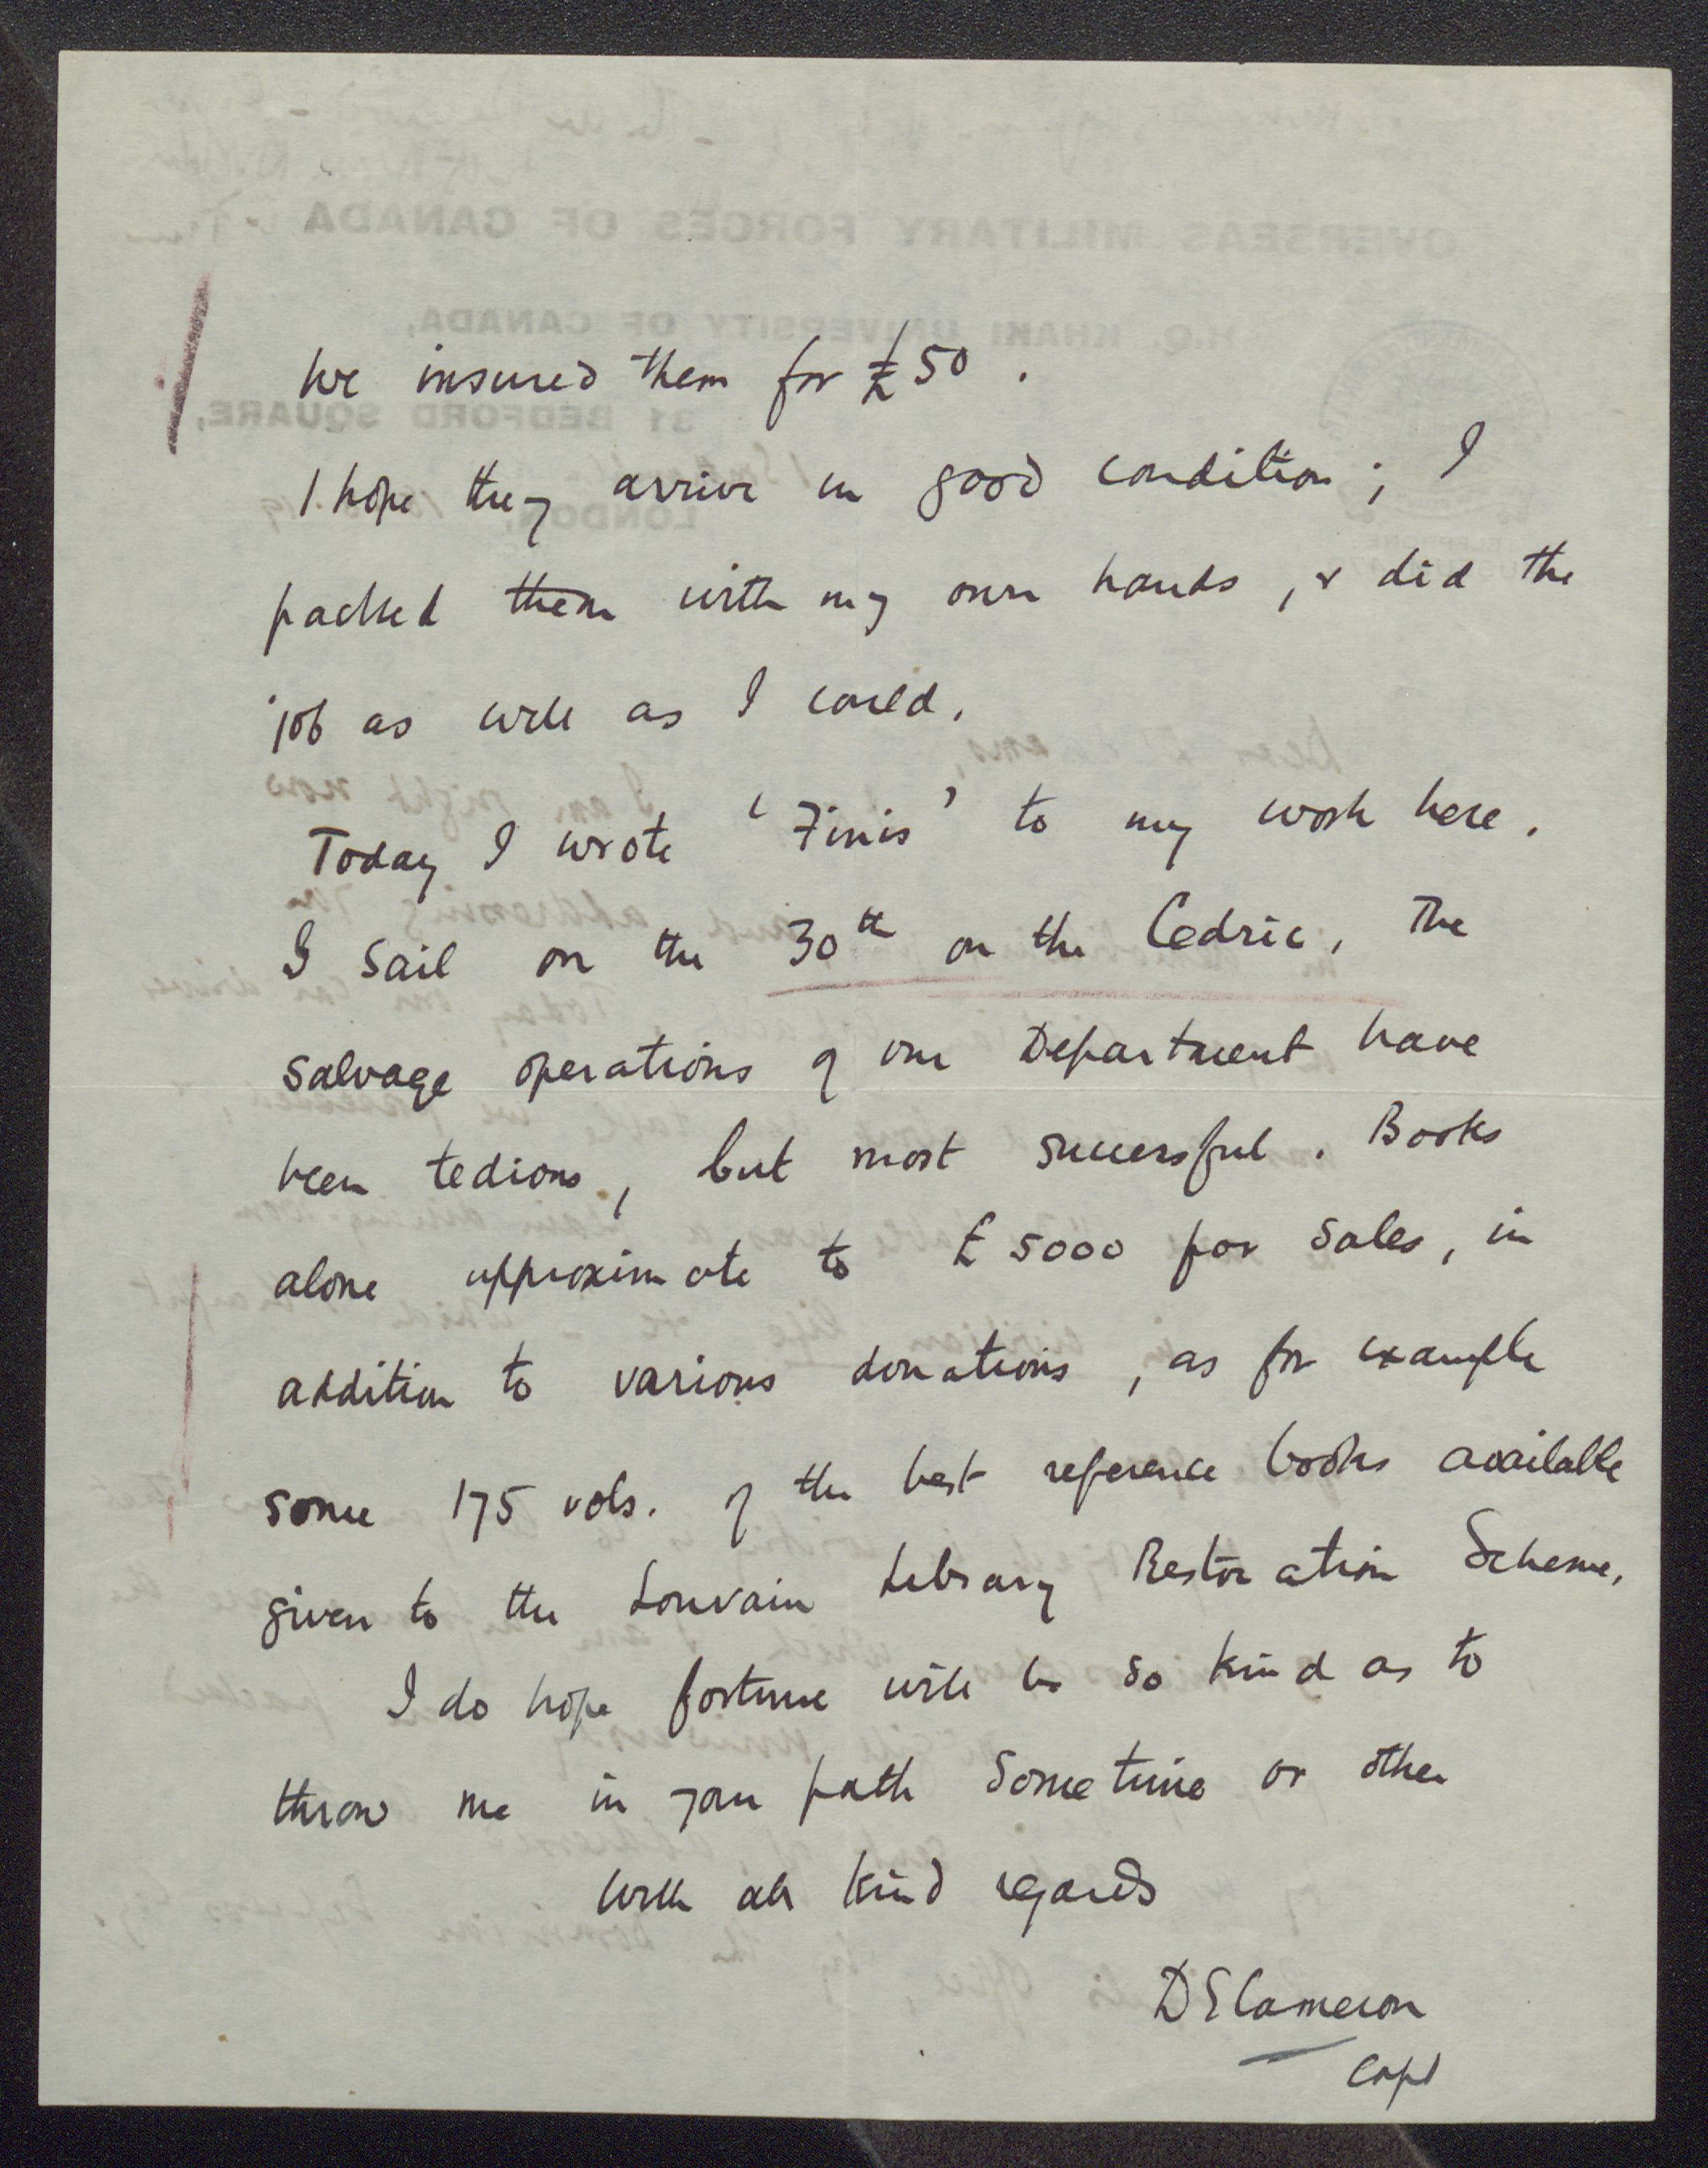 We insured them for £50.
I hope they arrive in good condition; I
packed them with my own hands, & did the
job as well as I could.
Today I wrote 'Finis' to my work here.
I sail on the 30th on the Cedric. The
salvage operations of our Department have
been tedious, but most successful. Books
alone approximate to £5000 for sales, in
addition to various donations, as for example
some 175 vols. of the best reference books available
given to the Louvain Library Restoration Scheme.
I do hope fortune will be so kind as to
throw me in your path sometime or other
With all kind regards
D E Cameron
Capt